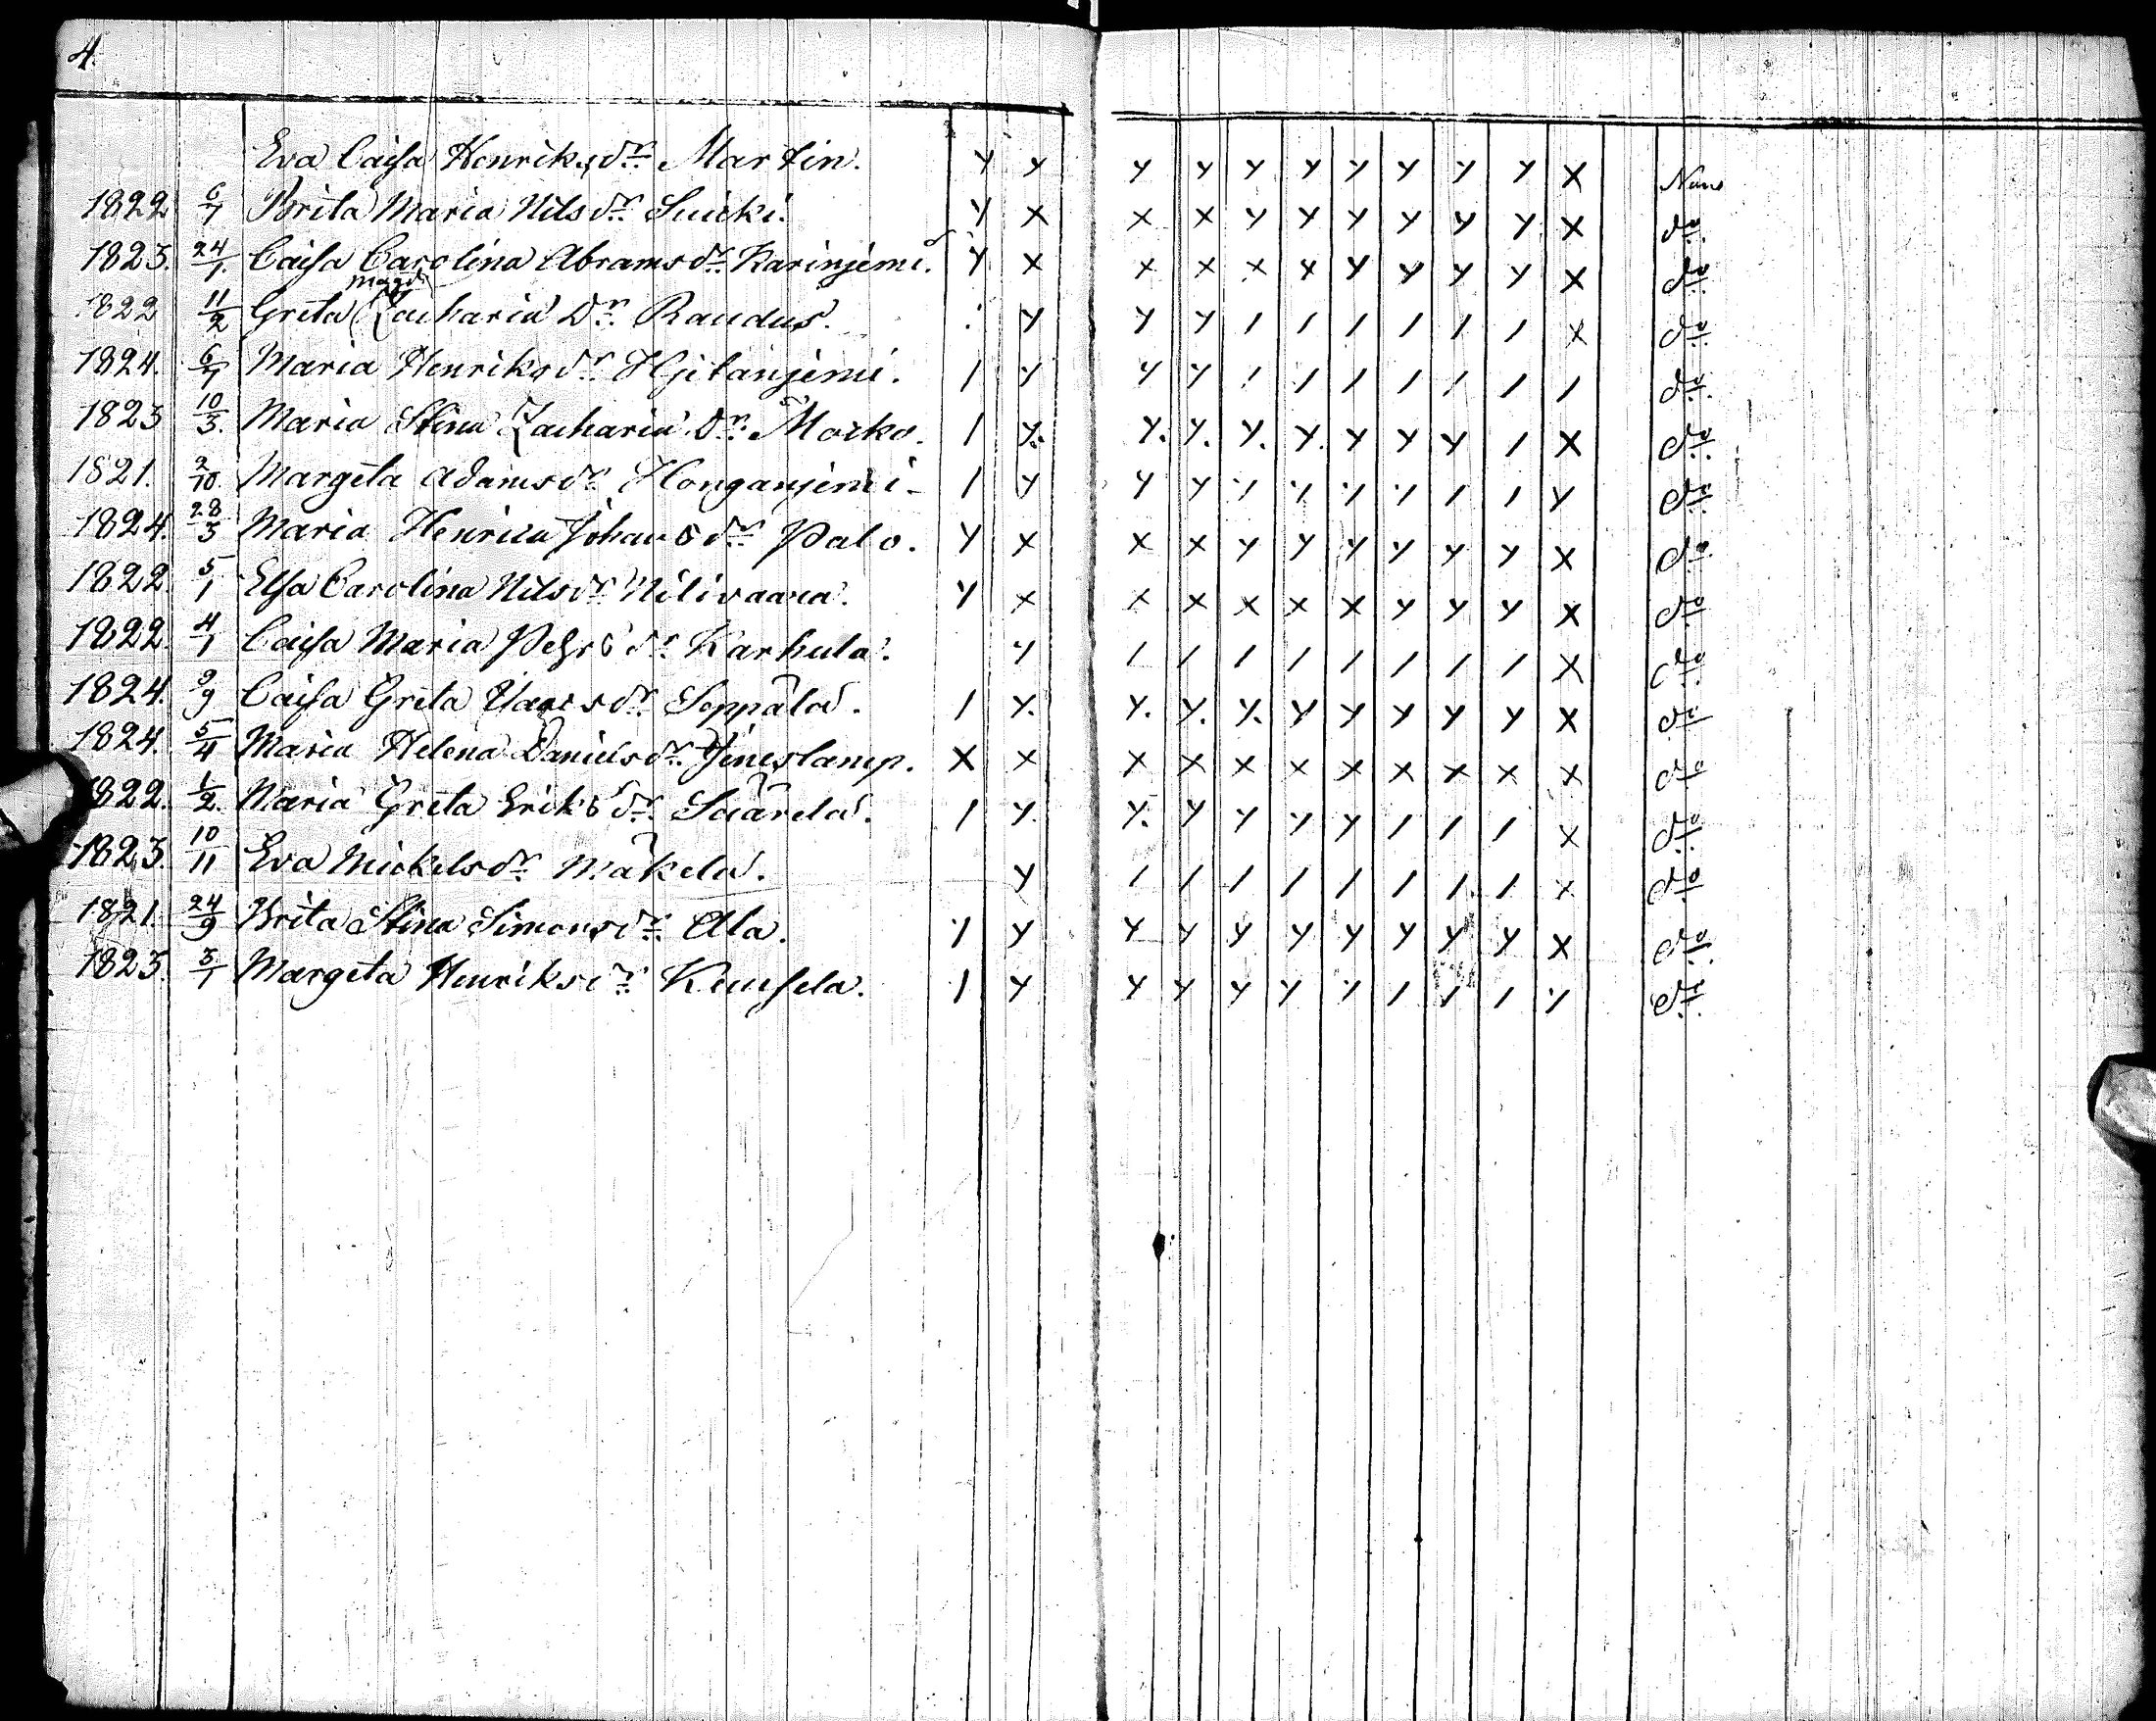 4.
Eva Caisa Henriksdr. Martin. y y y y y y y y y y x Nöns
1822 6/7 Brita Maria Nilsdr. Snicki. y x x x y y y y y y x do.
1823. 24/1. Caisa Carolina Abramsdr. Karinjemi. y x x x x x y y y y x do
Magd.
1822 11/2 Greta Zachariä Dr. Raudus. y y y / / / / / / x do
1824. 6/7 Maria Henriksdr. Hjitanjemi. / y y y / / / / / / / do.
1823 10/3. Maria Stina Zachariä Dr. Morko. / y. y. y. y. y. y y y / x do
1821. 2/10. Margeta Adamsdr. Honganjemi - / y y y y y y y / / y do
1824. 28/3 Maria Henrica Johansdr. Palo. y x x x y y y y y y x do.
1822. 5/1 Elsa Carolina Nilsdr. Nilivaara. y x x x x x x y y y x do
1822. 4/1 Caisa Maria Pehrsdr. Karhula. y / / / / / / / / x do
1824. /9 Caisa Greta dr. Seppälä. / y. y. y. y. y y y y y x do
1824. 5/4 Maria Helena Danielsdr. x x x x x x x x x x x do
1822. 1/2. Maria Greta Eriksdr. / y y. y y y y / / / x do
1823. 10/11 Eva Mickelsdr. Mäkelä. y / / / / / / / / x do
1821. 24/9 Brita Stina Simonsdr. Ala. y y y y y y y y y y x do.
1823. 3/1 Margeta Henriksdr. / y y y y y y / / / y do.